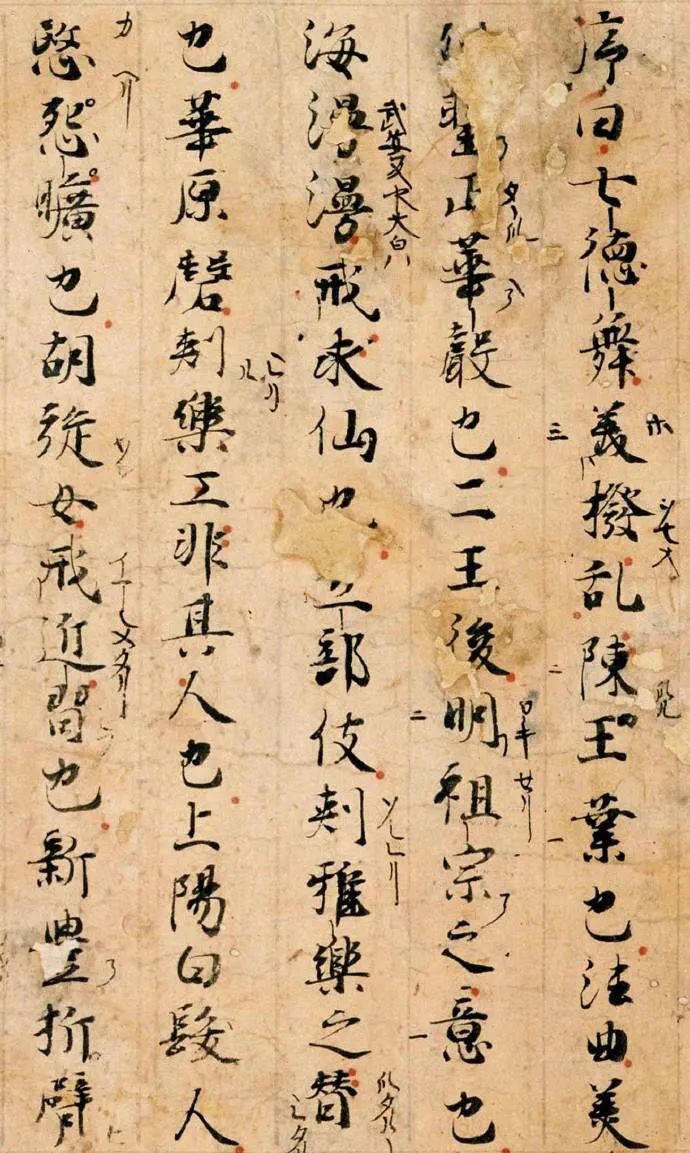 序曰七徳舞美撥乱陳王業也法曲美
聖正華聲也二王後明祖宗之意也
海漫漫戒求仙也立部伎刺雅樂之替
也華原磬刺樂工非其人也上陽白髮人
愍怨曠也胡旋女戒近習也新豐折臂